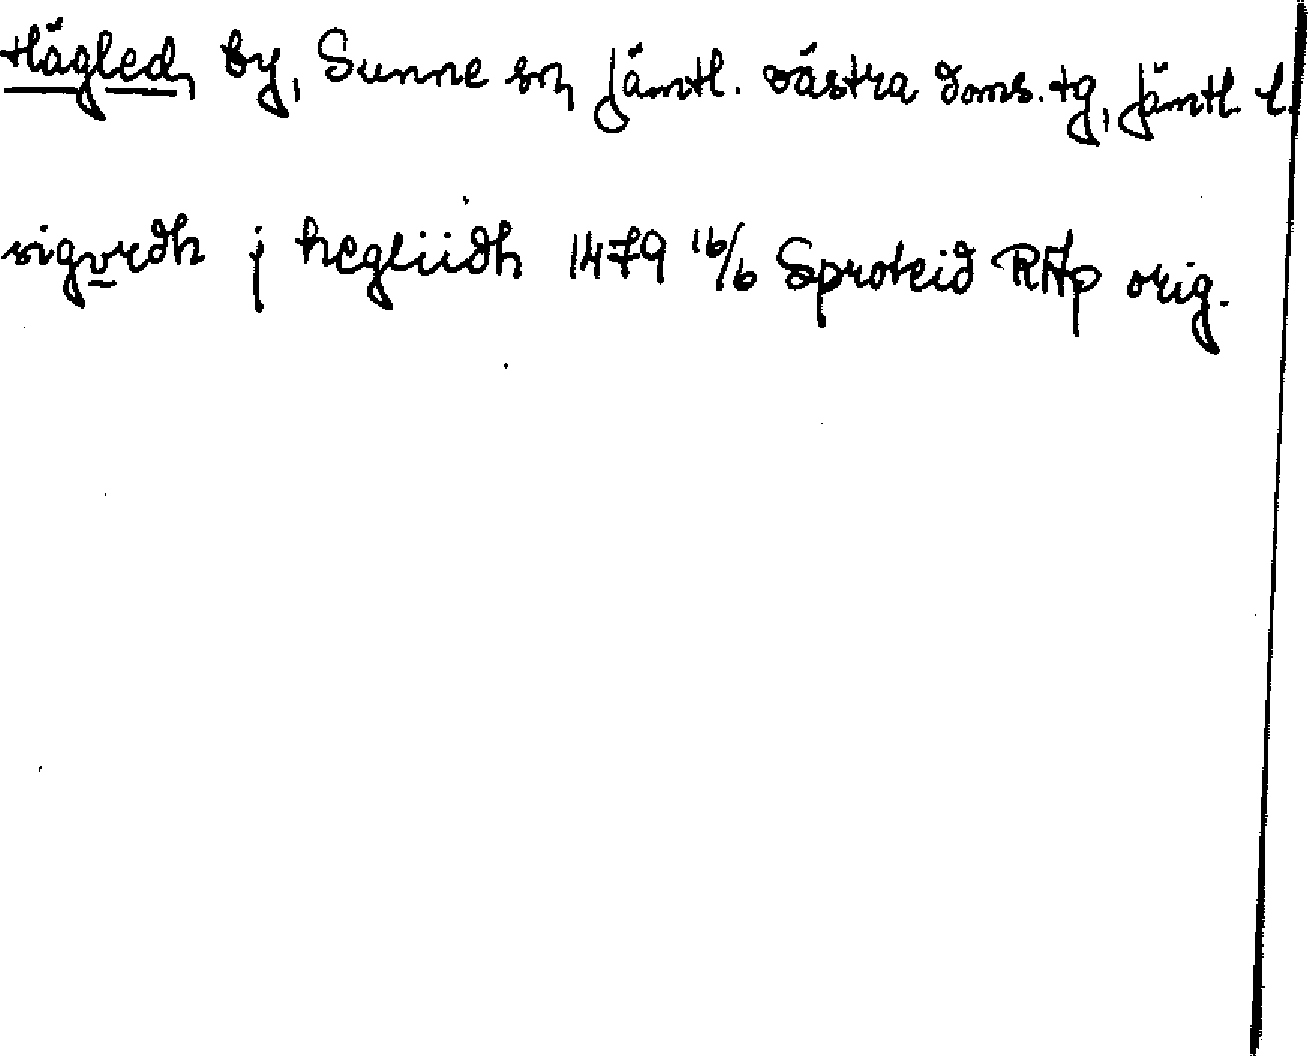 Hägled, by, Sunne sn, Jämtl. västra doms. tg, Jämtl l.
sigvrdh j hegliidh 1479 16/6 Sproteid RAp orig.